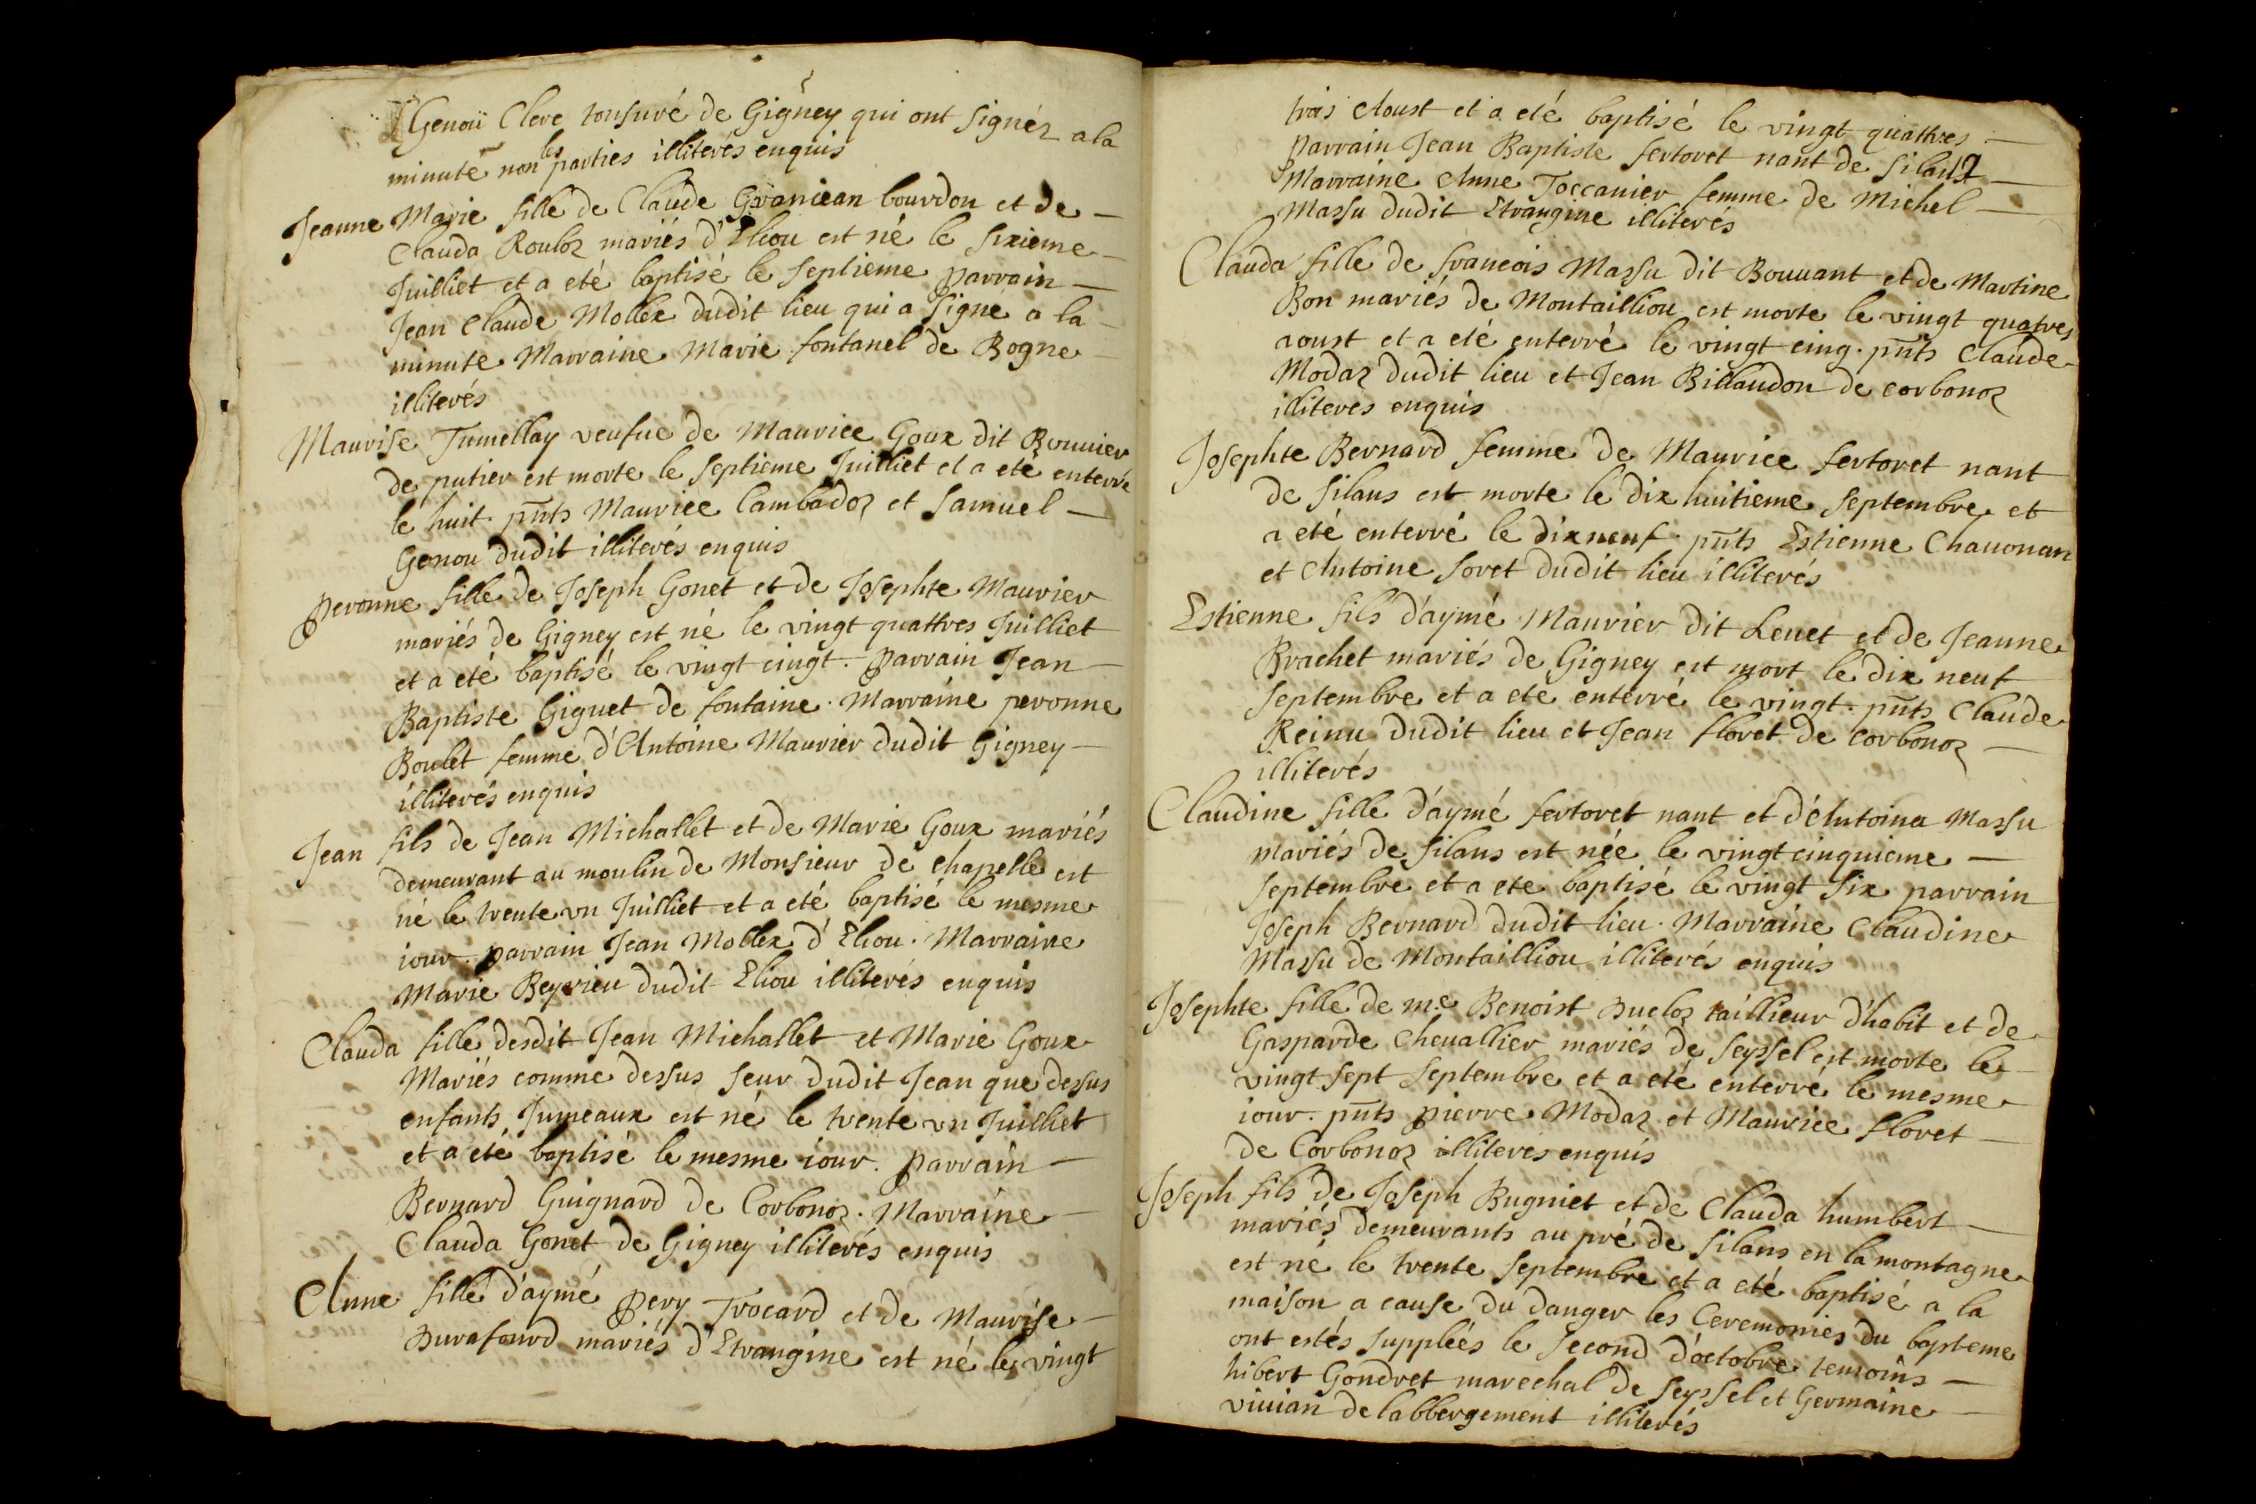 Genou Clerc tonsuré de Gigney qui ont signéz a la
minute non les parties illiterés enquis
Jeanne Marie fille de Claude Granjean bourdon et de
Clauda Rouloz mariés d'Eliou est né le sixieme
Juilliet et a eté baptisé le septieme parrain
Jean Claude Mollex dudit lieu qui a signé a la
minute Marraine Marie fontanel de Rogne
illiterés
Maurise Tumellay veufue de Maurice Goux dit Bouuier
de putier est morte le septieme Juilliet et a eté enterré
le huit. pnts Maurice Cambadoz et Samuel
Genou dudit illiterés enquis
Peronne fille de Joseph Gonet et de Josephte Maurier
mariés de Gigney est né le vingt quattres Juilliet
et a eté baptisé le vingt cingt. Parrain Jean
Baptiste Giguet de fontaine. Marraine peronne
Boulet femme d'Antoine Maurier dudit Gigney
illiterés enquis
Jean fils de Jean Michallet et de Marie Goux mariés
demeurant au moulin de Monsieur de chapelle est
né le trente vn Juilliet et a eté baptisé le mesme
iour. parrain Jean Mollex d'Eliou. Marraine
Marie Beyrieu dudit Eliou illiterés enquis
Clauda fille desdit Jean Michallet et Marie Goux
Mariés comme dessus seur dudit Jean que dessus
enfants Jumeaux est né le trente vn Juilliet
et a eté baptisé le mesme iour. parrain
Bernard Guignard de Corbonoz. Marraine
Clauda Gonet de Gigney illiterés enquis
Anne fille d'aymé Pery Trocard et de Maurise
Durafourd mariés d'Etrangine est né le vingt
trois Aoust et a eté baptisé le vingt quattres
Parrain Jean Baptiste fertoret nant de silans
Marraine Anne Toccanier femme de Michel
Massu dudit Etrangine illiterés
Clauda fille de francois Massu dit Bouuant et de Martine
Bon mariés de Montailliou est morte le vingt quatres
aoust et a eté enterré le vingt cinq. pnts Claude
Modaz dudit lieu et Jean Billaudon de corbonoz
illiteres enquis
Josephte Bernard femme de Maurice fertoret nant
de silans est morte le dix huitieme septembre et
a eté enterré le dixneuf. pnts Estienne Chauonan
et Antoine foret dudit lieu illiterés
Estienne fils d'aymé Maurier dit Leuet et de Jeanne
Brachet mariés de Gigney est mort le dix neuf
septembre et a eté enterré le vingt. pnts Claude
Reinu dudit lieu et Jean floret de Corbonoz
illiterés
Claudine fille d'aymé fertoret nant et d'Antoina Massu
mariés de silans est née le vingt cinquieme
septembre et a ete baptisé le vingt six parrain
Joseph Bernard dudit lieu. Marraine Claudine
Massu de Montailliou illiterés enquis
Josephte fille de me Benoist Ducloz taillieur d'habit et de
Gasparde Cheuallier mariés de Seyssel est morte le
vingt sept septembre et a eté enterré le mesme
iour. pnts pierre Modaz et Maurice floret
de Corbonoz illiteres enquis
Joseph fils de Joseph Bugniet et de Clauda humbert
mariés demeurants au pré de silans en la montagne
est né le trente septembre et a eté baptisé a la
maison a cause du danger les Ceremonies du bapteme
ont estés suppleés le second d'octobre temoins
hibert Gondret marechal de Seyssel et Germaine
viuian de labbergement illiterés